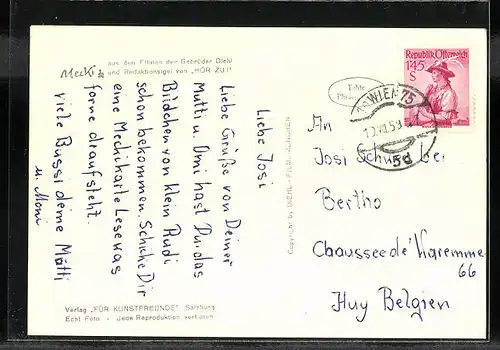 Mecki
aus den Filmen der Gebrüder Diehl
und Redaktionsigel von „HÖR ZU!"
Liebe Josi
Liebe Grüße von Deiner
Mutti u. Omi hast Du das
Bildchen von klein Rudi
schon bekommen. Schicke Dir
eine Meckikarte Lese was
forne draufsteht.
viele Bussi deine Mutti
u. Moni
Verlag „FÜR KUNSTFREUNDE" Salzburg
Echt Foto - Jede Reproduktion verboten
Copyright by DIEHL - FILM, MÜNCHEN
Echte
Republik Österreich
1.45
S
WIEN 75
5d
An
Josi
Bertho
Chaussee de Waremme
66
Huy Belgien